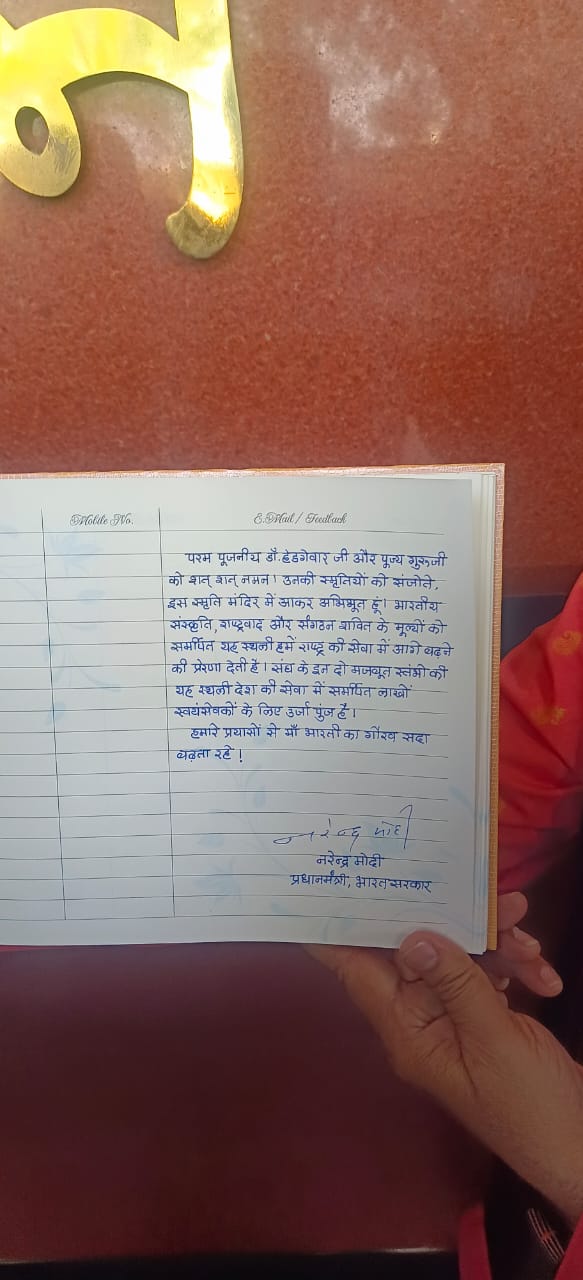 Mobile No.
E.Mail / Feedback
परम पूजनीय डॉ. हेडगेवार जी और पूज्य गुरूजी
को शत् शत् नमन। उनकी स्मृतियों को संजोते,
इस स्मृति मंदिर में आकर अभिभूत हूं। भारतीय
संस्कृति, राष्ट्रवाद और संगठन शक्ति के मूल्यों को
समर्पित यह स्थली हमें राष्ट्र की सेवा में आगे बढ़ने
की प्रेरणा देती है। संघ के इन दो मजबूत स्तंभों की
यह स्थली देश की सेवा में समर्पित लाखों
स्वयंसेवकों के लिए उर्जा पुंज है।
हमारे प्रयासों से माँ भारती का गौरव सदा
बढ़ता रहे!
नरेन्द्र मोदी
नरेन्द्र मोदी
प्रधानमंत्री, भारत सरकार